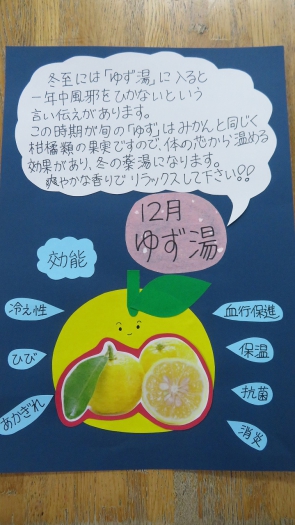 冬至には「ゆず湯」に入ると
一年中風邪をひかないという
言い伝えがあります。
この時期が旬の「ゆず」はみかんと同じく
柑橘類の果実ですので、体の芯から温める
効果があり、冬の薬湯になります。
爽やかな香りでリラックスして下さい!!
12月
ゆず湯
効能
冷え性
ひび
あかぎれ
血行促進
保温
抗菌
消炎